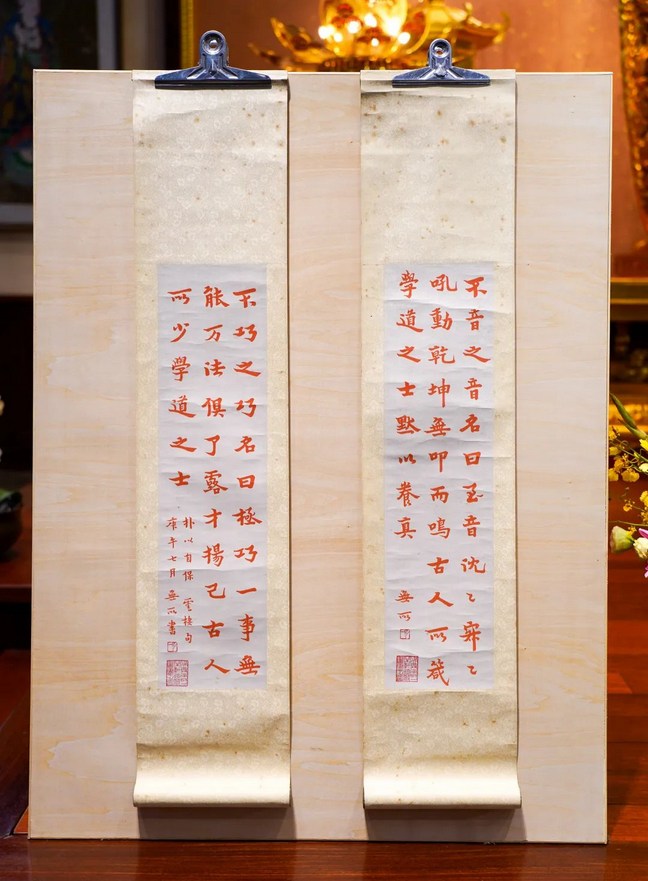 不音之音名曰至音沈〻寂〻
吼動乾坤無叩而鳴古人所箴
學道之士默以養真 無所
不巧之巧名曰極巧一事無
能万法俱了露才揚己古人
所少學道之士
朴以自保 雲棲句
庚午七月 無所書